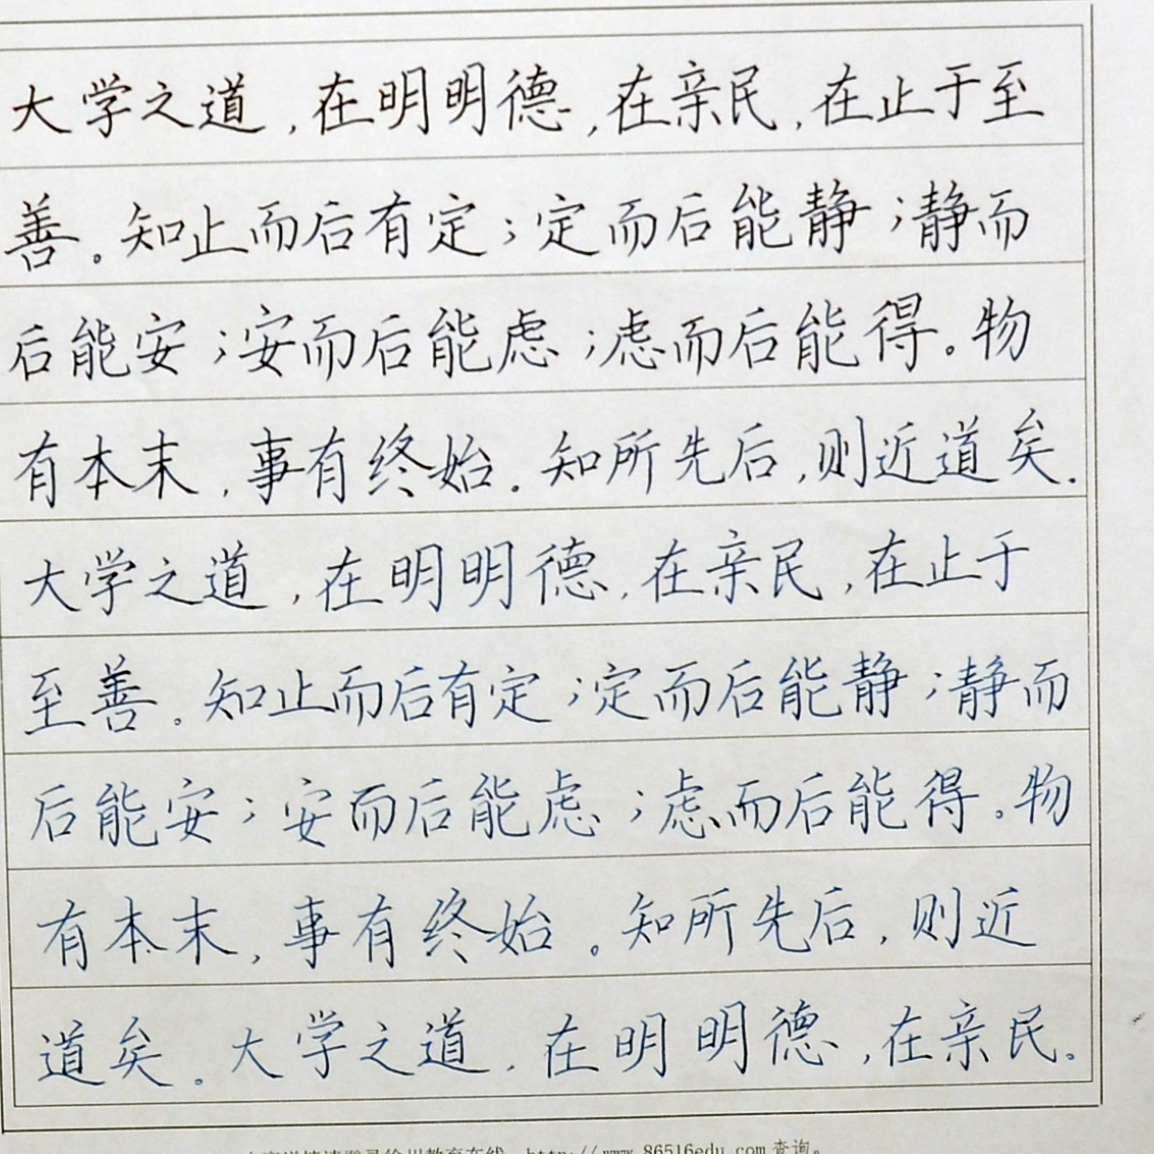 大学之道，在明明德，在亲民，在止于至
善。知止而后有定；定而后能静；静而
后能安；安而后能虑；虑而后能得。物
有本末，事有终始。知所先后，则近道矣.
大学之道，在明明德，在亲民，在止于
至善。知止而后有定；定而后能静；静而
后能安；安而后能虑；虑而后能得。物
有本末，事有终始。知所先后，则近
道矣。大学之道，在明明德，在亲民。
http://www.86516edu.com查询。